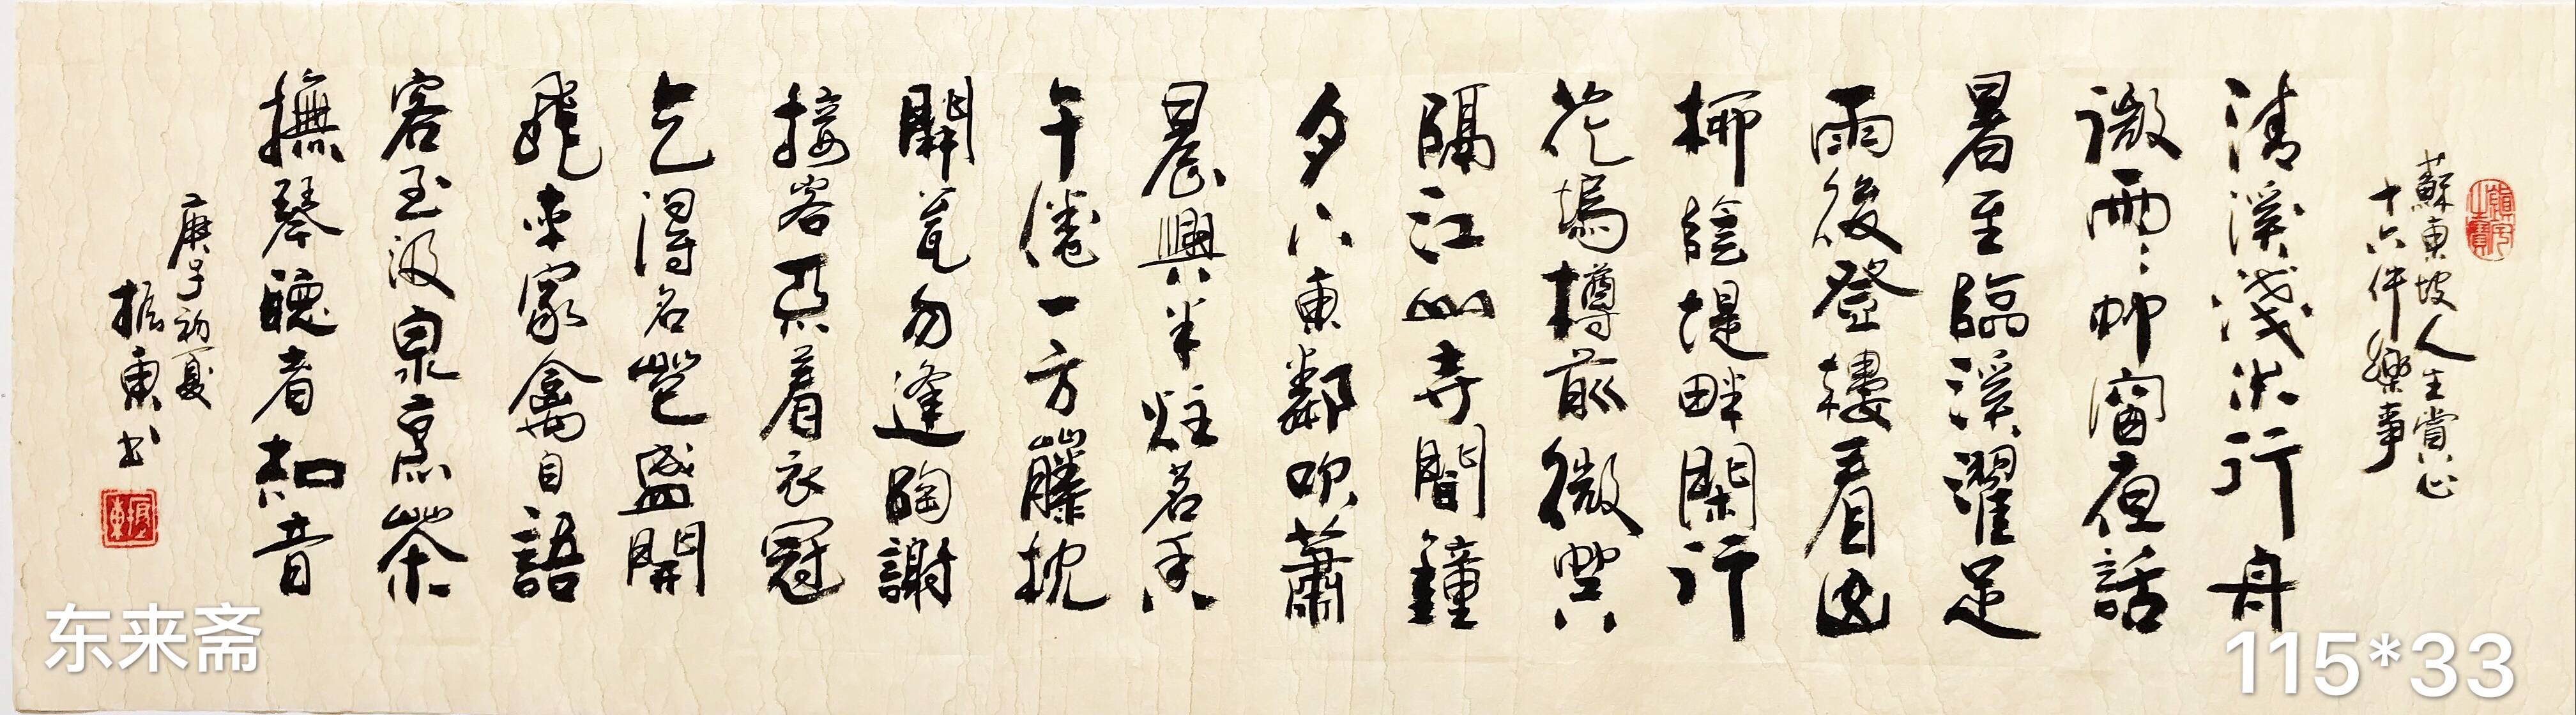 蘇東坡人生賞心
十六件樂事
清溪淺水行舟
微雨竹窗夜話
暑至臨溪濯足
雨後登樓看山
柳蔭堤畔閑行
花塢樽前微笑
隔江山寺聞鐘
月下東鄰吹蕭
晨興半炷茗香
午倦一方藤枕
開甕勿逢陶謝
接客不着衣冠
乞得名花盛開
飛來家禽自語
客至汲泉烹茶
撫琴聽者知音
庚子初夏
振東书
振東
东来斋
115*33